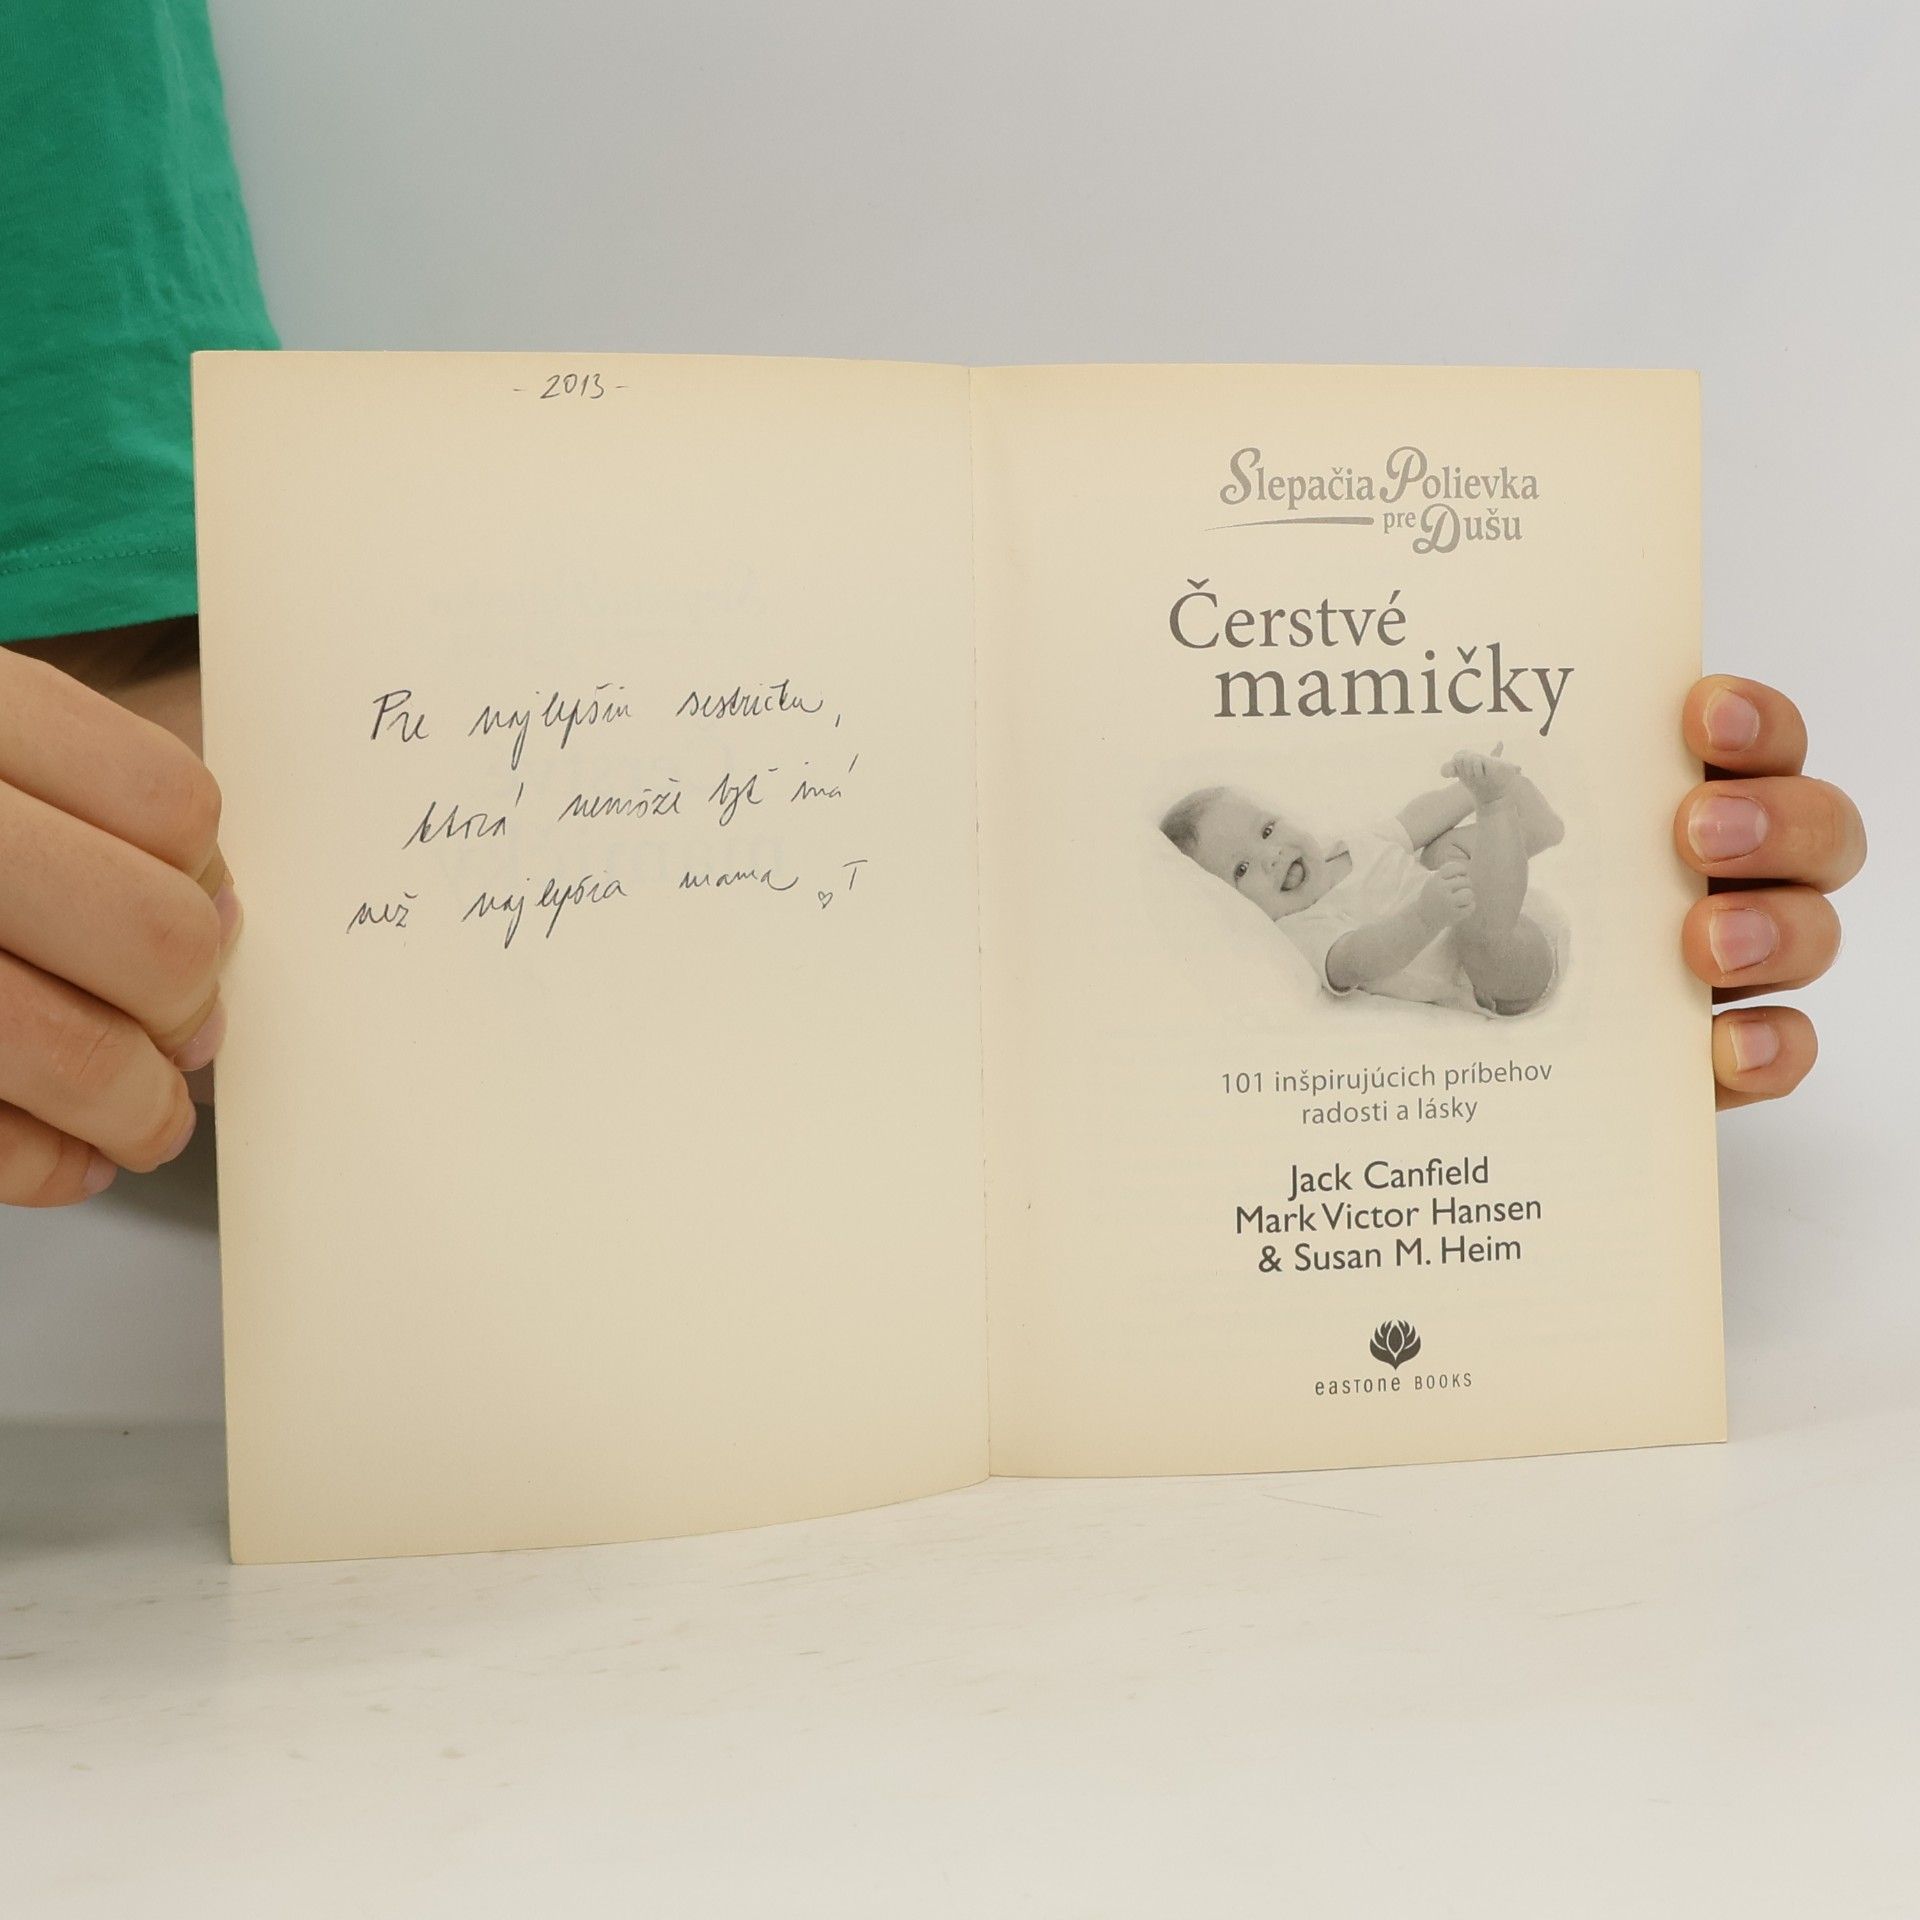 - 2013 -
Pre najlepšiu sestričku,
ktorá nemôže byť iná
než najlepšia mama ♡ T
Slepačia Polievka
pre Dušu
Čerstvé
mamičky
101 inšpirujúcich príbehov
radosti a lásky
Jack Canfield
Mark Victor Hansen
& Susan M. Heim
eastone BOOKS